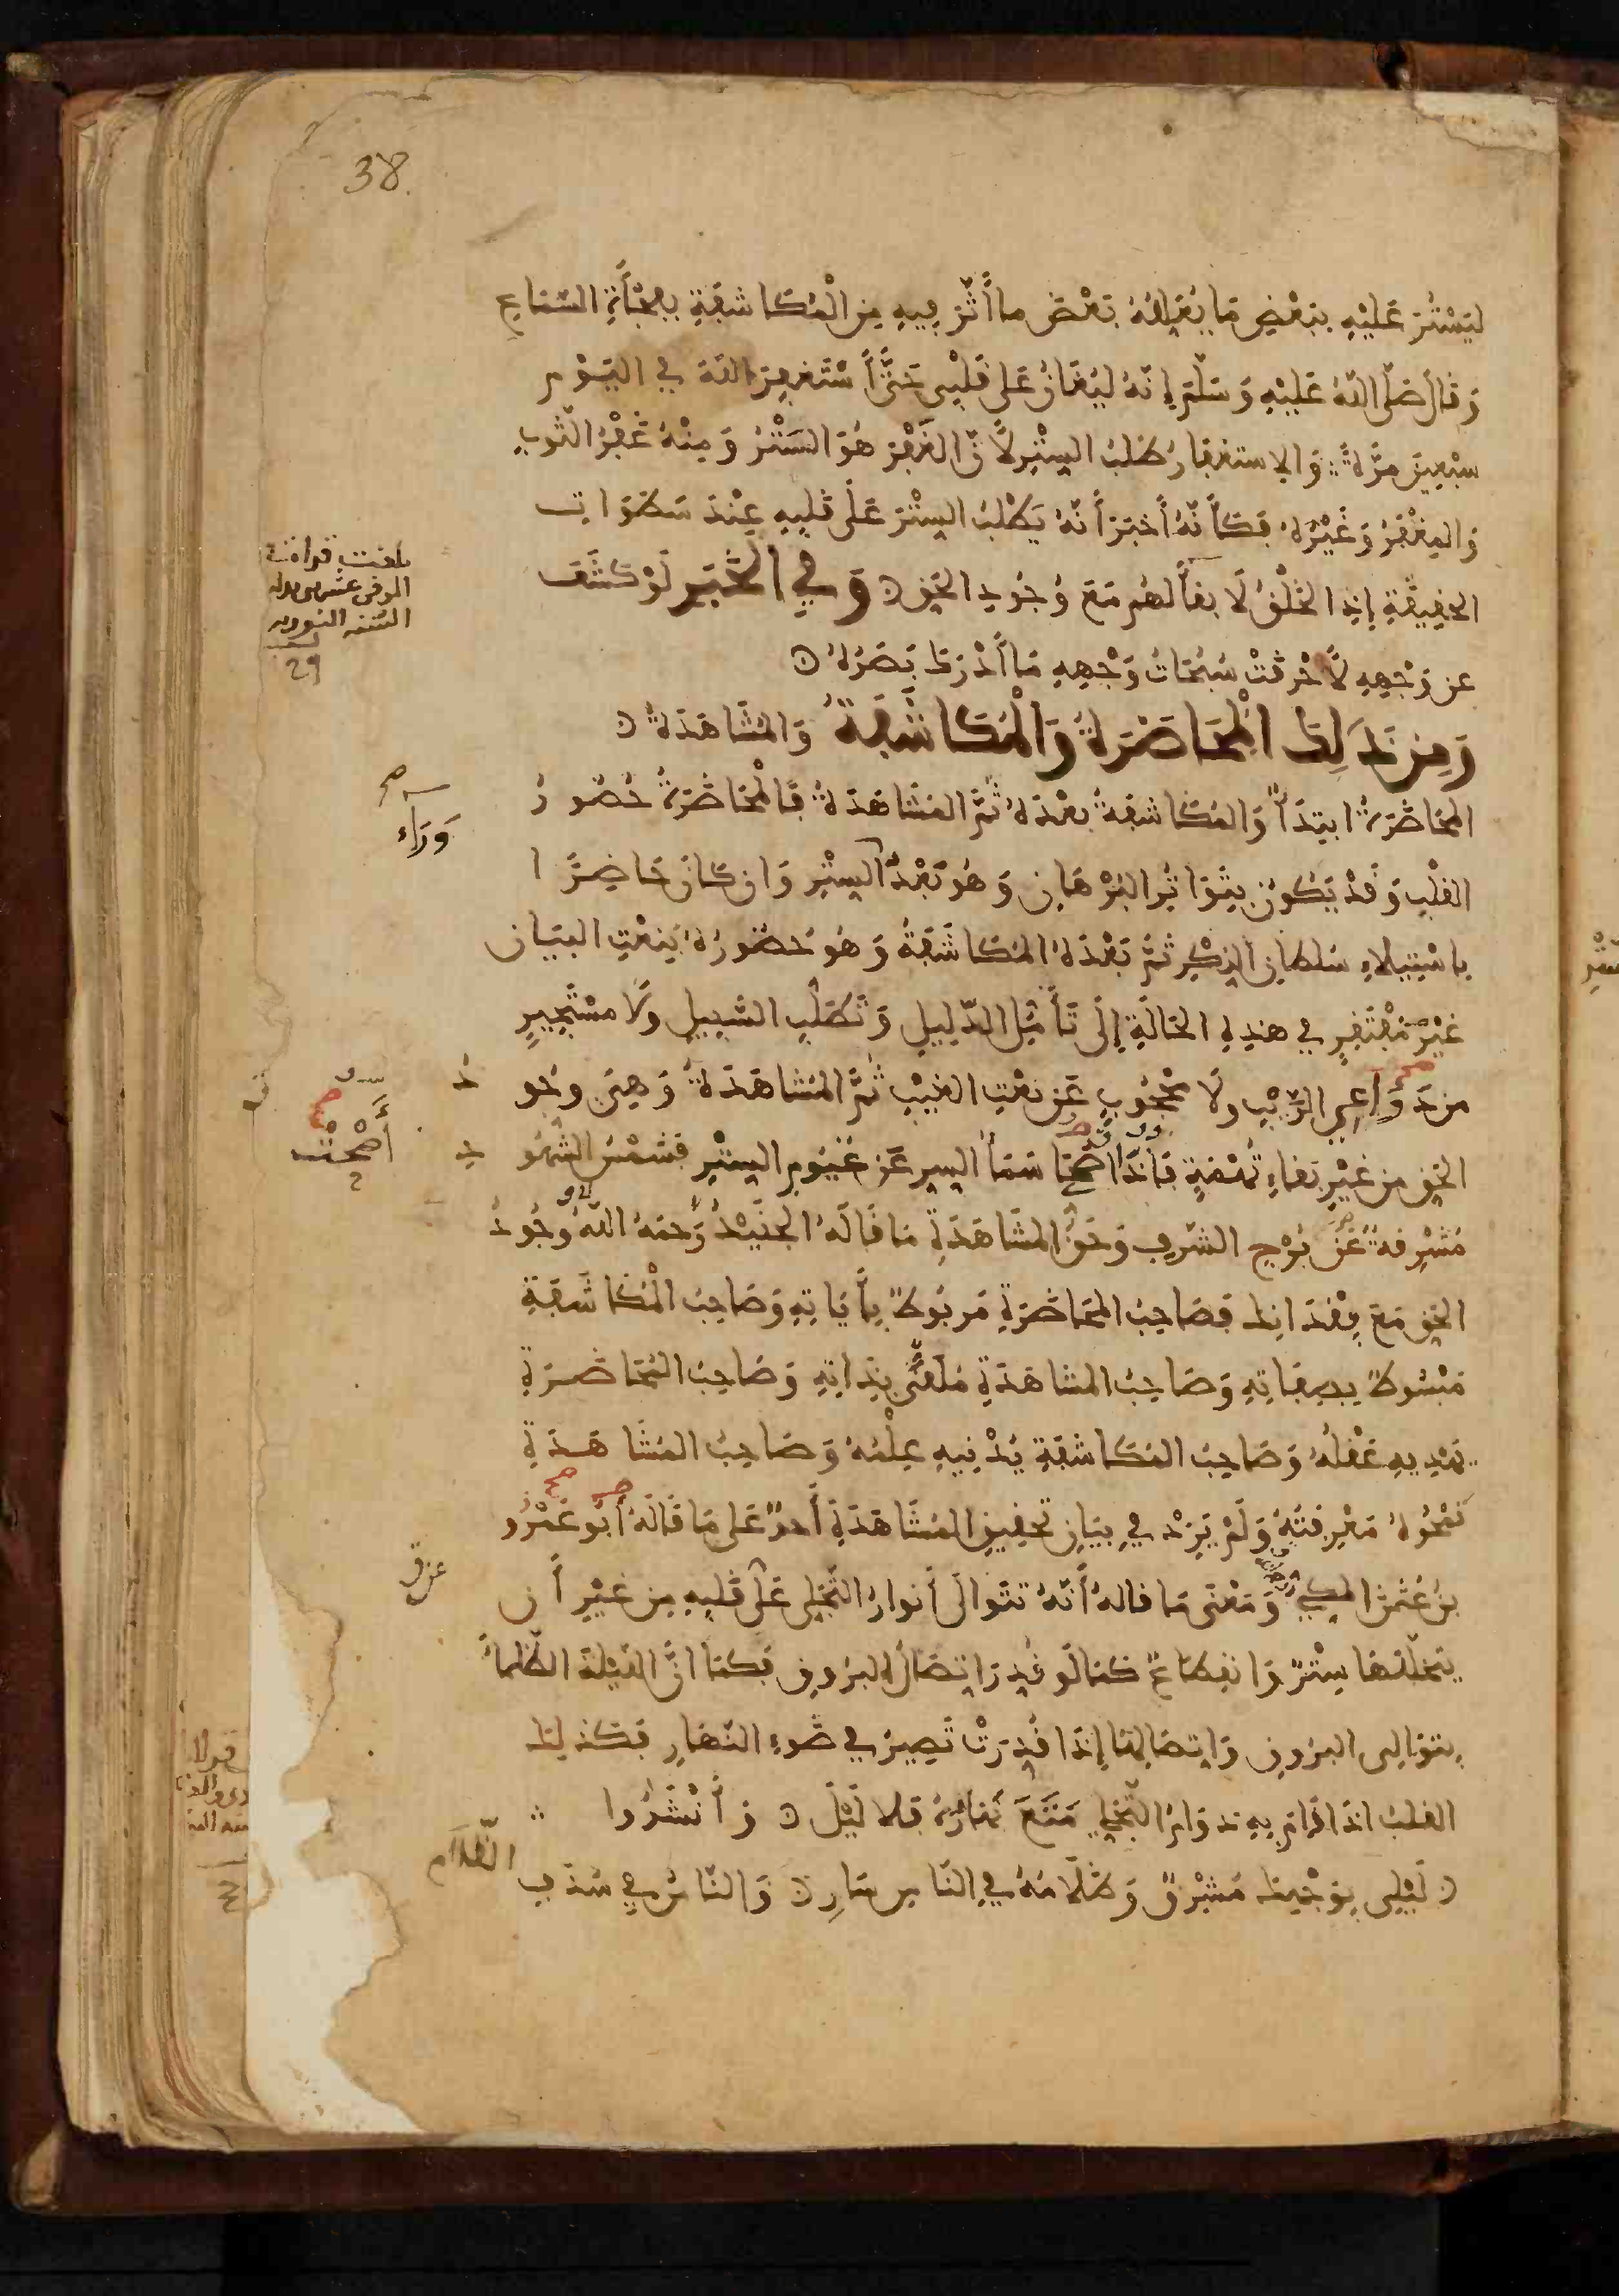 38
ليَسْتُرَ عَلَيْهِ بِبَعْضِ مَا يُقَابِلُهُ بَعْضَ ما أَثَّرَ فِيهِ مِنَ الْمُكَاشَفَةِ بِفُجَاءَةِ السَّمَاعِ
وَقَالَ صَلَّى اللهُ عَلَيْهِ وَسَلَّمَ إِنَّهُ لَيُغَانُ عَلَى قَلْبِى حَتَّى أَسْتَغْفِرَ اللهَ فِي الْيَوْمِ
سَبْعِينَ مَرَّةً وَالاِسْتِغْفَارُ طَلَبُ السِّتْرِ لأَنَّ الغَفْرَ هُوَ السَّتْرُ وَمِنْهُ غَفْرُ الثَّوْبِ
وَالمِغْفَرُ وَغَيْرُهُ فَكَأَنَّهُ أَخْبَرَ أَنَّهُ يَطْلُبُ السِّتْرَ عَلَى قَلْبِهِ عِنْدَ سَطَوَاتِ
الحَقِيقَةِ إِذِ الخَلْقُ لَا بَقَاءَ لَهُم مَعَ وُجُودِ الحَقِّ وَفِي الْخَبَرِ لَوْ كَشَفَ
عن وَجْهِهِ لَأَحْرَقَتْ سُبُحَاتُ وَجْهِهِ مَا أَدْرَكَ بَصَرُهُ
وَمِن ذَلِكَ الْمُحَاضَرَةُ وَالْمُكَاشَفَةُ وَالمُشَاهَدَةُ
المُحَاضَرَةُ ابتِدَاءً وَالمُكَاشَفَةُ بَعْدَهُ ثُمَّ المُشَاهَدَةُ فَالْمُحَاضَرَةُ حُضُورُ
القَلْبِ وَقَدْ يَكُونُ بِتَوَاتُرِ البُرْهَانِ وَهُوَ بَعْدُ السِّتْرِ وَإِن كَانَ حَاضِرًا
وَرَاء
بِاسْتِيلَاءِ سُلطَانِ الذِّكْرِ ثُمَّ بَعْدَهُ المُكَاشَفَةُ وَهُوَ حُضُورُهُ بِنَعْتِ البَيَانِ
غَيْرَ مُفْتَقِرٍ فِي هَذِهِ الحَالَةِ إِلَى تَأَمُّلِ الدَّلِيلِ وَتَطَلُّبِ السَّبِيلِ وَلَا مُسْتَجِيرٍ
مِن دَوَاعِي الرَّيْبِ وَلَا مَحْجُوبٍ عَن نَعْتِ الغَيْبِ ثُمَّ المُشَاهَدَةُ وَهِيَ وُجُو دُ
الحَقِّ مِن غَيْرِ بَقَاءِ تُهْمَةٍ فَإِذَا أصْحَتْ سَمَاءُ السِّرِّ عَن غُيُومِ السِّتْرِ فَشَمْسُ الشُّهُو دِ
أَصْحَتْ
مُشْرِقَةٌ عَن بُرْجِ الشَّرَفِ وَحَقُّ المُشَاهَدَةِ مَا قَالَهُ الجُنَيْدُ رَحِمَهُ اللهُ وُجُودُ
الحَقِّ مَعَ فِقْدَانِكَ فَصَاحِبُ المُحَاضَرَةِ مَرْبُوطٌ بِآيَاتِهِ وَصَاحِبُ الْمُكَاشَفَةِ
مَبْسُوطٌ بِصِفَاتِهِ وَصَاحِبُ المُشَاهَدَةِ مُلْقًى بِذَاتِهِ وَصَاحِبُ المُحَاضَرَةِ
يَهْدِيهِ عَقْلُهُ وَصَاحِبُ المُكَاشَفَةِ يُدْنِيهِ عِلْمُهُ وَصَاحِبُ المُشَاهَدَةِ
تَمْحُوهُ مَعْرِفَتُهُ وَلَمْ يَزِدْ فِي بَيَانِ تَحْقِيقِ المُشَاهَدَةِ أَحَدٌ عَلَى مَا قَالَهُ أَبُو عَمْرُو
بنُ عُثْمَنَ المَكِّي وَمَعْنَى مَا قَالَهُ أَنَّهُ تَتَوَالَى أَنوَارُ التَّجَلِّي عَلَى قَلْبِهِ مِن غَيْرِ أَن
يَتَخَلَّلَهَا سِتْرٌ وَانقِطَاعٌ كَمَا لَو قُدِّرَ اتِّصَالُ البُرُوقِ فَكَمَا أَنَّ اللَيْلَةَ الظَّلْمَاءَ
بِتَوَالِى البُرُوقِ وَاتِّصَالِهَا إِذَا قُدِّرَتْ تَصِيرُ فِي ضَوْءِ النَّهَارِ فَكَذَلِكَ
القَلْبُ إِذَا دَامَ بِهِ دَوَامُ التَّجَلِّي مَتَعَ نَهَارُهُ فَلَا لَيْلَ وَأَنْشَدُوا
لَيْلِى بِوَجْهِكَ مُشْرِقٌ وَظَلَامُهُ فِي النَّاسِ سَارِ وَالنَّاسُ فِي سُدَفِ الظَّلَام